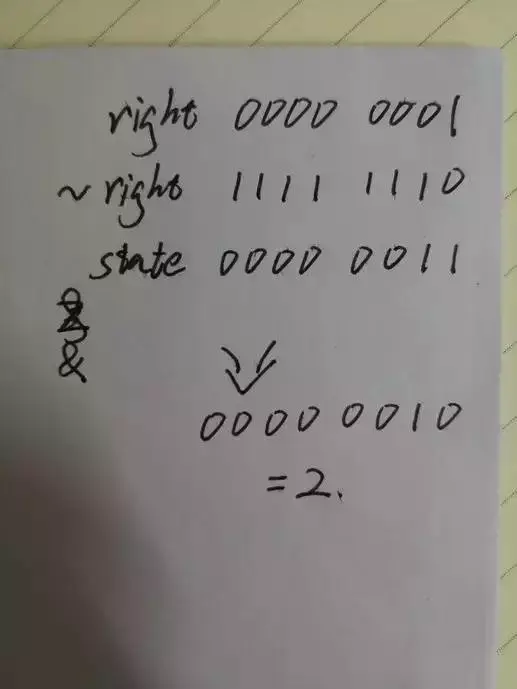 right 0000 0001
~ right 1111 1110
state 0000 0011
&
0000 0010
= 2.